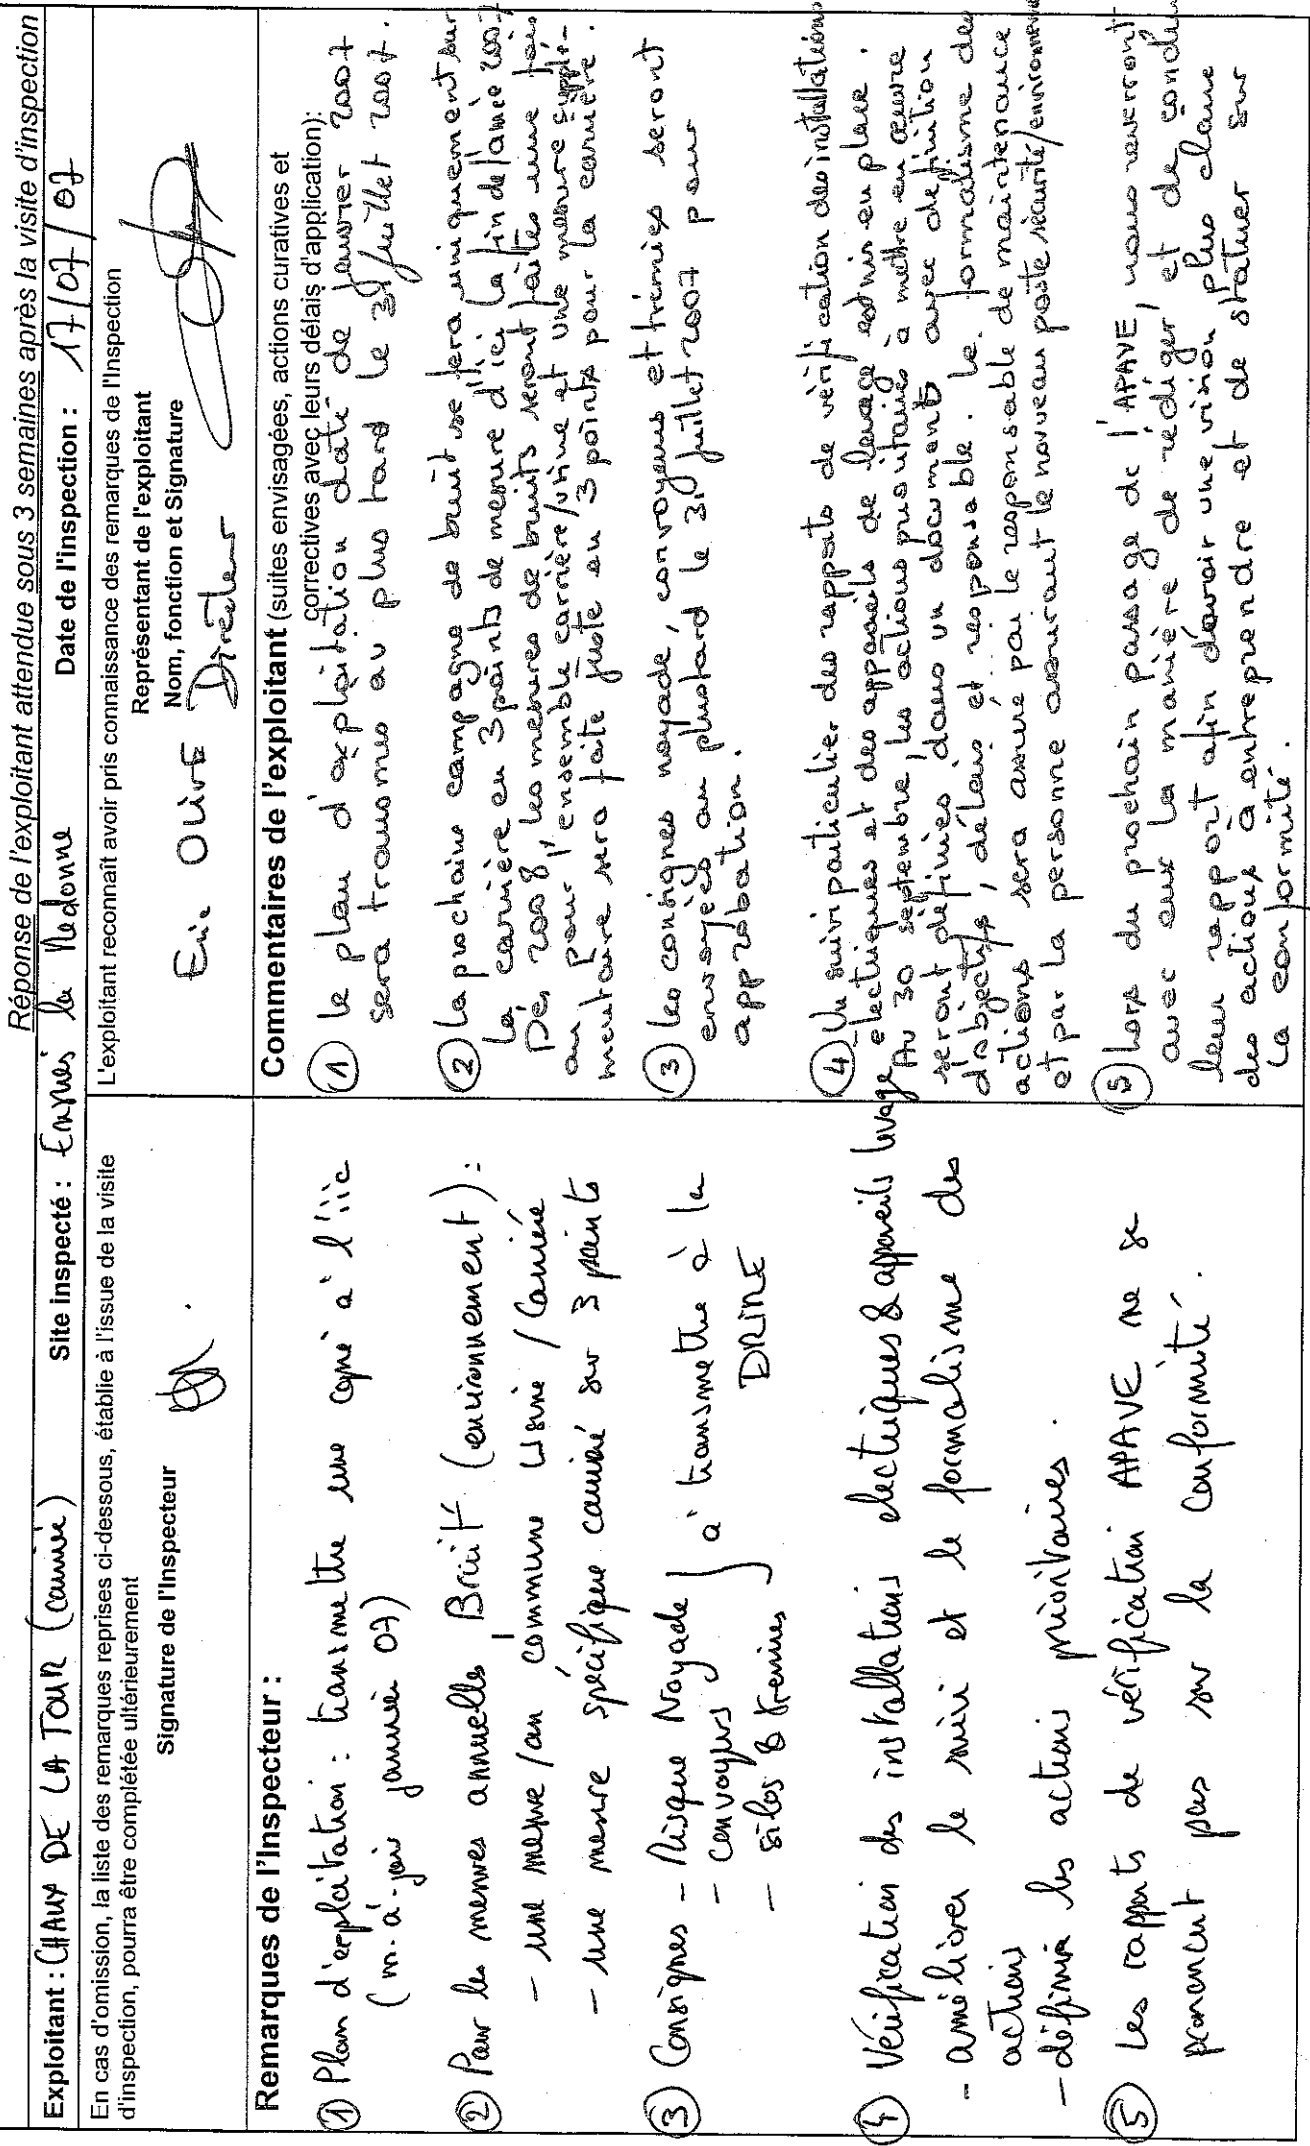 Réponse de l'exploitant attendue sous 3 semaines après la visite d'inspection
Exploitant : CHAUX DE LA TOUR (carrière) Site inspecté : Ensuès la Redonne Date de l'inspection : 17/07/07
En cas d'omission, la liste des remarques reprises ci-dessous, établie à l'issue de la visite
d'inspection, pourra être complétée ultérieurement
Signature de l'Inspecteur
L'exploitant reconnaît avoir pris connaissance des remarques de l'Inspection
Représentant de l'exploitant
Nom, fonction et Signature
Eric OLIVE Directeur
Remarques de l'Inspecteur :
① Plan d'exploitation : transmettre une copie à l'iic
(m.à-jour janvier 07)
② Pour les mesures annuelles Bruit (environnement) :
- une mesure/an commune Usine / Carrière
- une mesure spécifique carrière sur 3 points
③ Consignes - Risque Noyade
- convoyeurs à transmettre à la
- silos & tremies DRIRE
④ Vérification des installations électriques & appareils levage
- améliorer le suivi et le formalisme des
actions
- définir les actions prioritaires.
⑤ Les rapports de vérification APAVE ne se
prononcent pas sur la conformité.
Commentaires de l'exploitant (suites envisagées, actions curatives et
correctives avec leurs délais d'application):
① le plan d'exploitation daté de janvier 2007
sera transmis au plus tard le 31 juillet 2007.
② la prochaine campagne de bruit se fera uniquement sur
la carrière en 3 points de mesure d'ici la fin de l'année 2007
Dès 2008, les mesures de bruits seront faites une fois
an pour l'ensemble carrière/usine et une mesure supplé-
mentaire sera faite juste en 3 points pour la carrière.
③ les consignes noyade, convoyeurs et trémies seront
envoyées au plus tard le 31 juillet 2007 pour
approbation.
④ Un suivi particulier des rapports de vérification des installations
électriques et des appareils de levage est mis en place.
Au 30 septembre, les actions prioritaires à mettre en œuvre
seront définies dans un document avec définition
d'objectifs, délais et responsable. le formalisme des
actions sera assuré par le responsable de maintenance
et par la personne assurant le nouveau poste sécurité/environnement
⑤ Lors du prochain passage de l'APAVE, nous reverront
avec eux la manière de rédiger et de conclure
leur rapport afin d'avoir une vision plus claire
des actions à entreprendre et de statuer sur
la conformité.